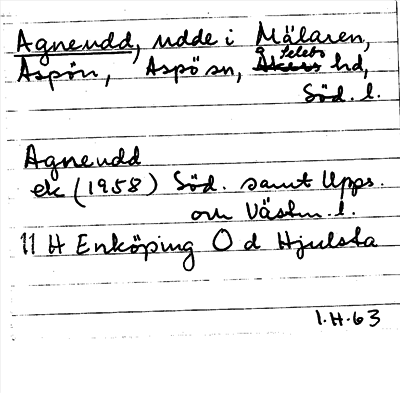 Agneudd, udde i Mälaren,
Aspön, Aspö sn, Åkers Selebo hd,
Söd. l.
Agneudd
ek (1958) Söd. samt Upps.
och Västm. l.
11 H Enköping O d Hjulsta
I.H.63